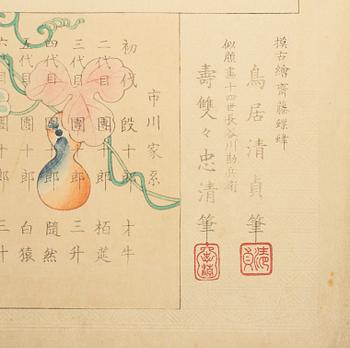 模古繪 齋藤蝶蜂
鳥居清貞筆
似顔畫十四世長谷川勘兵衛
壽雙々忠清筆
清貞
市川家系
初代 段十郎 才牛
二代目 團十郎 栢莚
三代目 團十郎 三升
四代目 團十郎 随然
五代目 團十郎 白猿
六代目 團十郎 三升